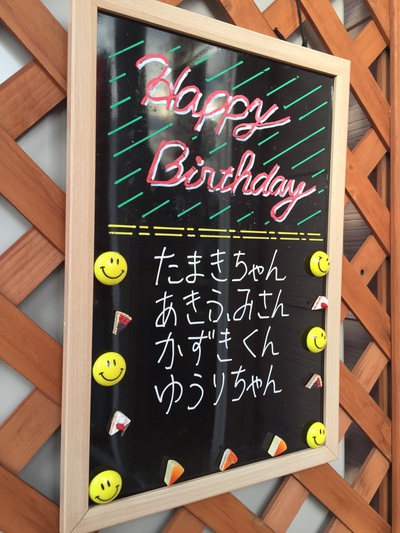 Happy
Birthday
たまきちゃん
あきふみさん
かずきくん
ゆうりちゃん